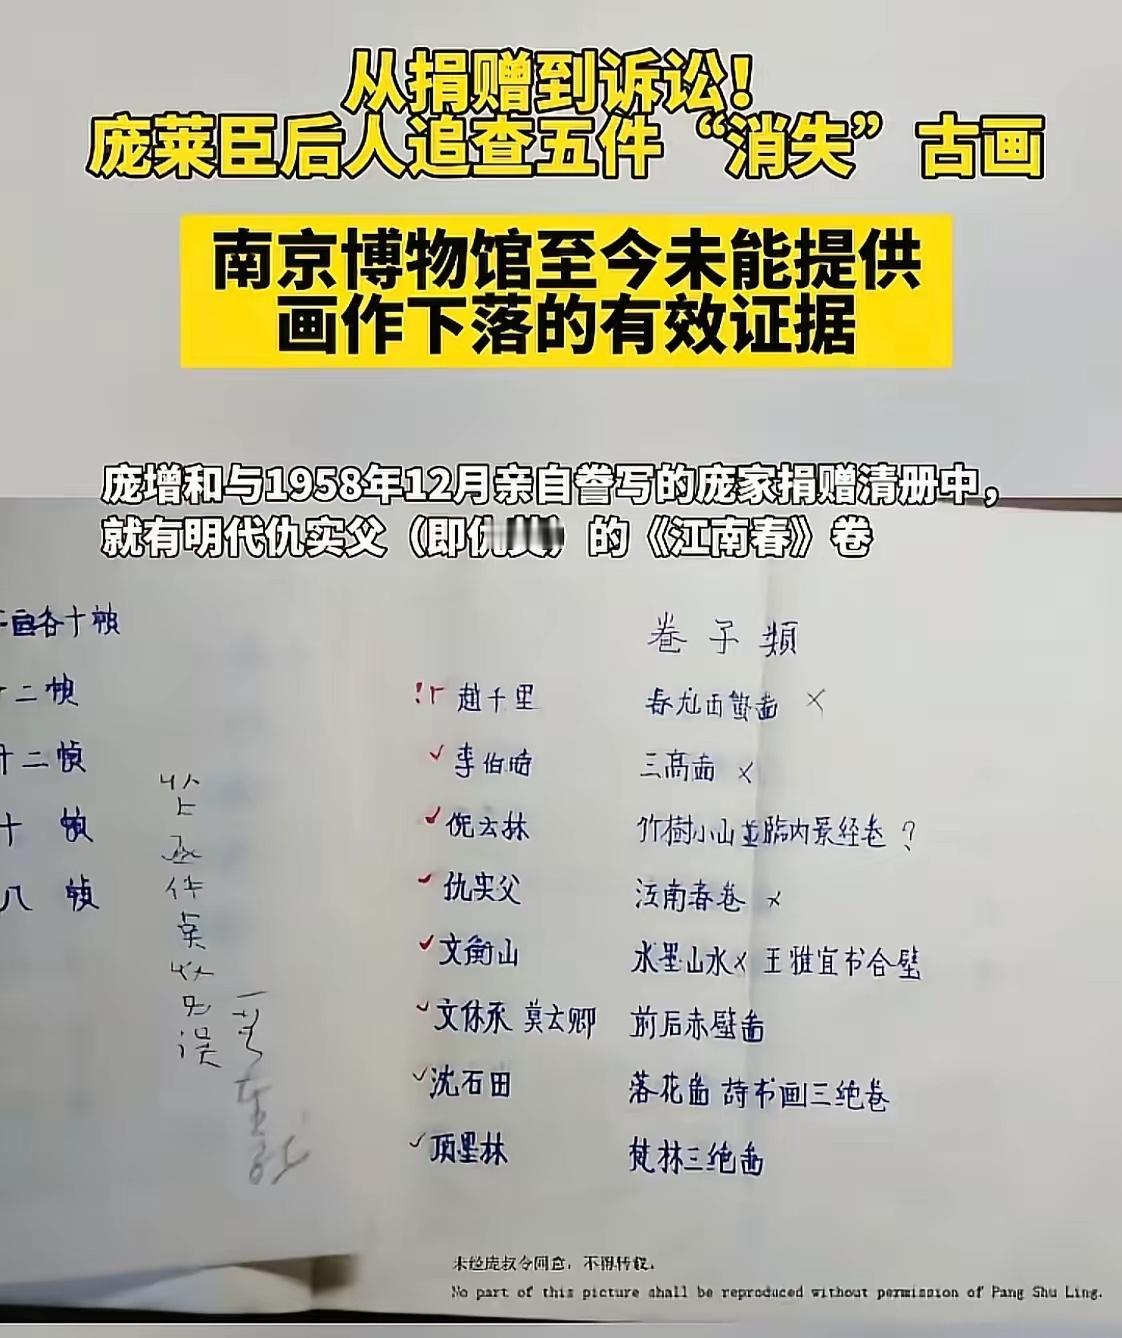 从捐赠到诉讼！
庞莱臣后人追查五件“消失”古画
南京博物馆至今未能提供
画作下落的有效证据
庞增和与1958年12月亲自誊写的庞家捐赠清册中，
就有明代仇实父（即仇）的《江南春》卷
各十帧
十二帧
十二帧
十 帧
八 帧
卷子類
趙千里 春龙 ×
李伯時 三高啚 ×
倪云林 竹樹小山並臨内景经卷 ?
仇实父 江南春卷 ×
文衡山 水墨山水× 王雅宜书合璧
文休承 莫云卿 前后赤壁啚
沈石田 落花啚 詩书画三绝卷
項墨林 梵林三绝啚
未经庞叔令同意，不得转载。
No part of this picture shall be reproduced without permission of Pang Shu Ling.